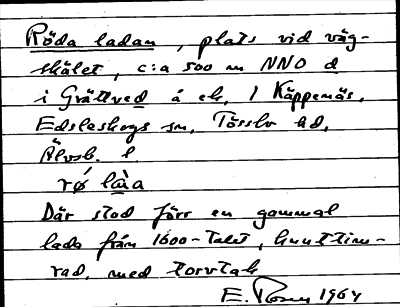 Röda ladan, plats vid väg-
skälet, c:a 500 m NNO d
i Grättved å ek. 1 Käppenäs,
Edsleskogs sn, Tössbo hd,
Älvsb. l
rǿ là̱a
Där stod förr en gammal
lada från 1600-talet, knuttim-
rad, med torvtak
E. 1964